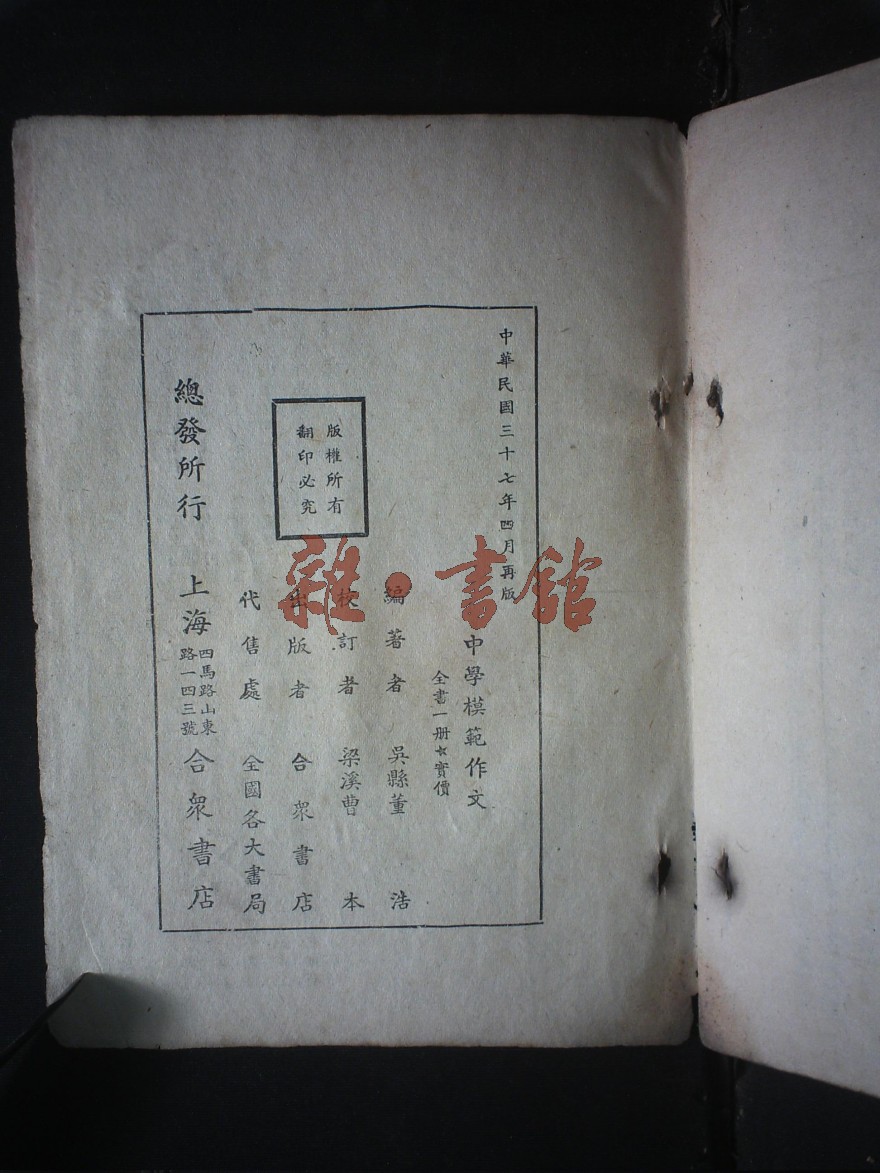 中華民國三十七年四月再版
中學模範作文
全書一册★實價
編著者 吳縣董浩
校訂者 梁溪曹本
出版者 合衆書店
代售處 全國各大書局
版權所有
翻印必究
總發所行 上海 四馬路山東
路一四三號 合衆書店
雜·書館